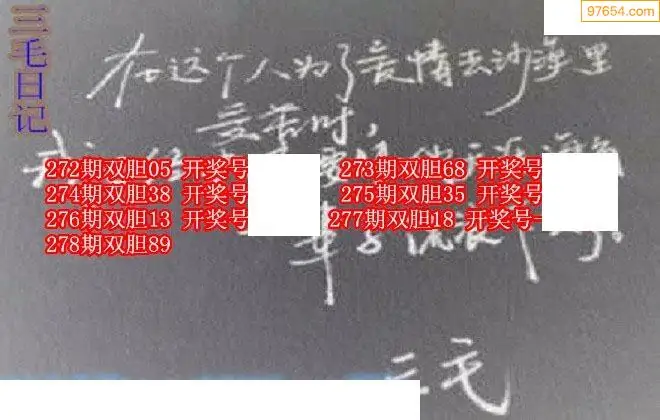 三毛日记
97654.com
在这个人为了爱情去沙漠里
受苦时，
272期双胆05 开奖号
273期双胆68 开奖号
274期双胆38 开奖号
275期双胆35 开奖号
276期双胆13 开奖号
277期双胆18 开奖号
278期双胆89
三毛